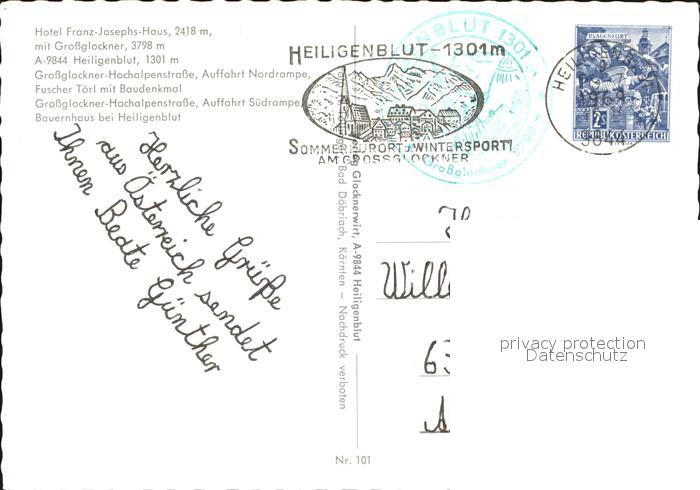 Hotel Franz-Josephs-Haus, 2418 m,
mit Großglockner, 3798 m
A-9844 Heiligenblut, 1301 m
Großglockner-Hochalpenstraße, Auffahrt Nordrampe,
Fuscher Törl mit Baudenkmal
Großglockner-Hochalpenstraße, Auffahrt Südrampe,
Bauernhaus bei Heiligenblut
HEILIGENBLUT-1301m
SOMMERKURORT u. WINTERSPORT
AM GROSSGLOCKNER
NBLUT 1301
Großglockner 3798 m
KLAGENFURT
2S
REPUBLIK ÖSTERREICH
HEILIGENBLUT
Herzliche Grüße
aus Österreich sendet
Ihnen Beate Günther
Glocknerwirt, A-9844 Heiligenblut
Bad Döbriach, Kärnten – Nachdruck verboten
Will
63
A
privacy protection
Datenschutz
Nr. 101